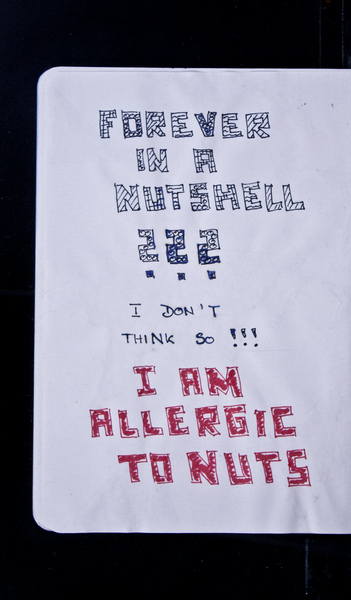 FOREVER
IN A
NUTSHELL
???
I DON'T
THINK SO !!!
I AM
ALLERGIC
TO NUTS